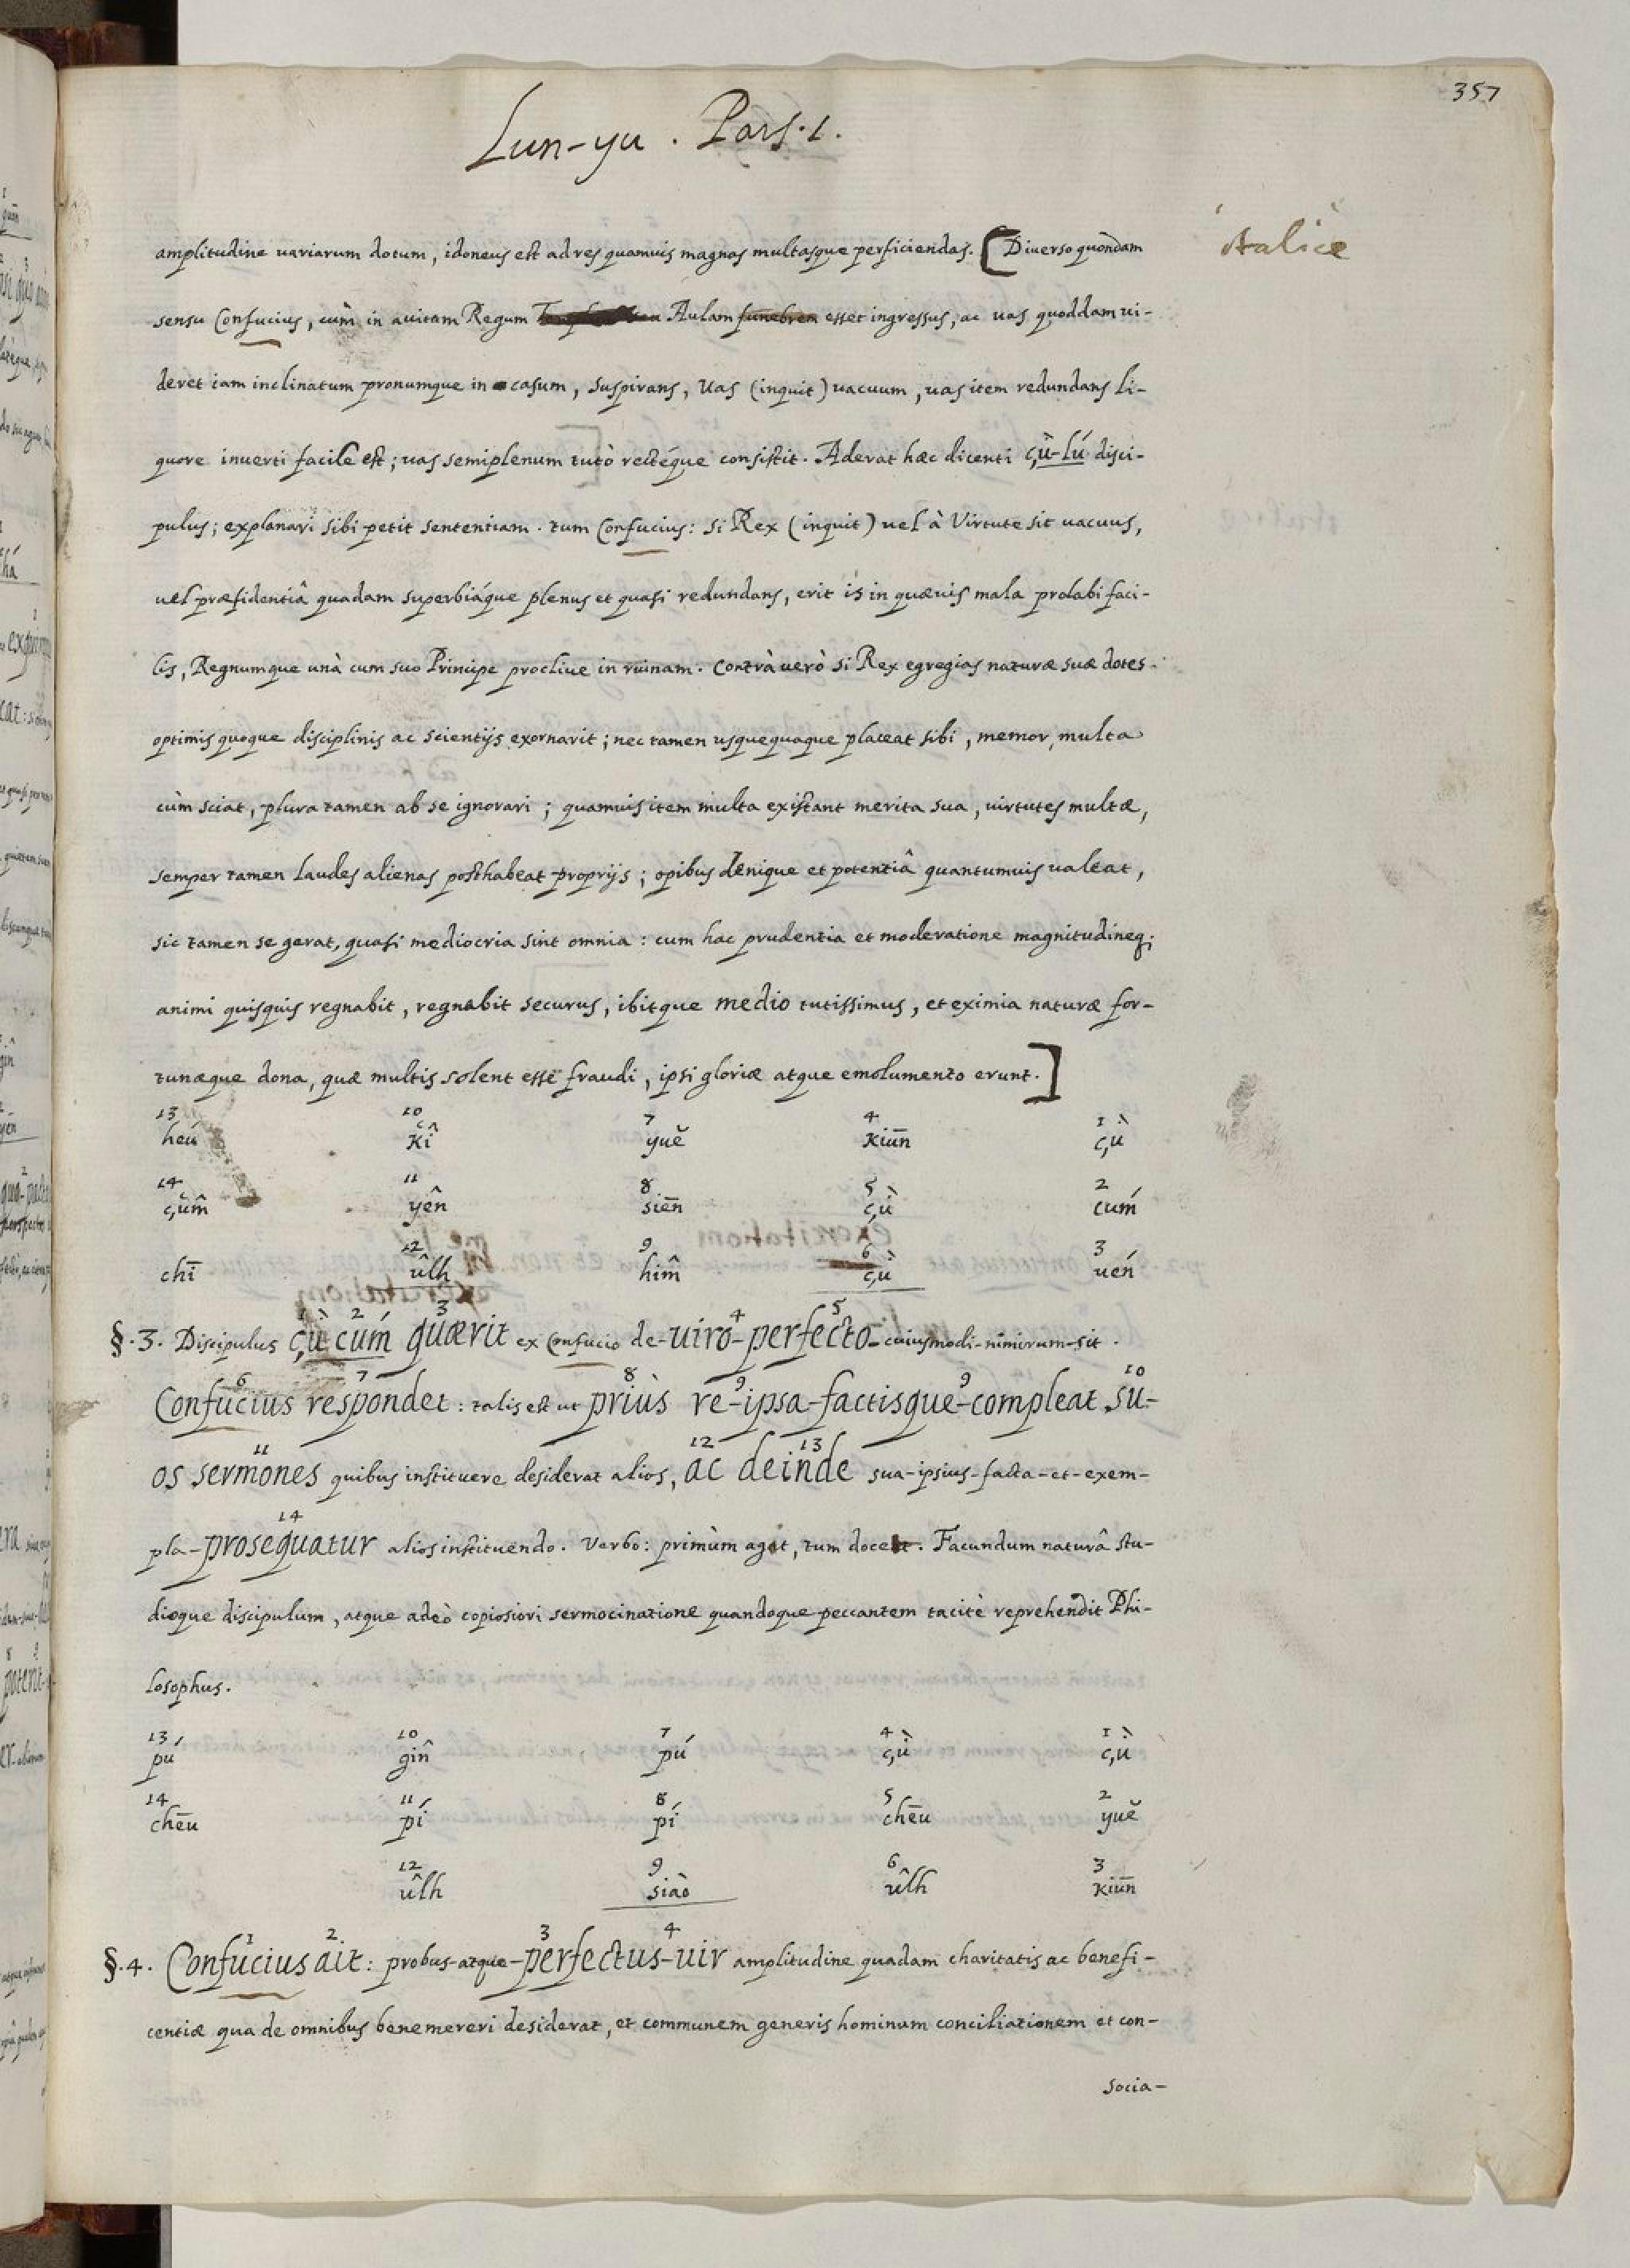 357
Lun-yu . Pars. 1.
Italicè
amplitudine uariarum dotum, idoneus est ad res quamuis magnas multasque perficiendas. [Diuerso quondam
sensu Confucius, cùm in auitam Regum Aulam funebrem esset ingressus, ac uas quoddam ui-
deret iam inclinatum pronumque in casum, suspirans, Vas (inquit) uacuum, uas item redundans li-
quore inuerti facile est; uas semiplenum tutò rectéque consistit. Aderat hæc dicenti çù-lú disci-
pulus; explanari sibi petit sententiam. tum Confucius: si Rex (inquit) uel à Virtute sit uacuus,
uel præfidentiâ quadam superbiáque plenus et quasi redundans, erit is in quæuis mala prolabi faci-
lis, Regnumque unà cum suo Principe procliue in ruinam. Contrà uerò si Rex egregias naturæ suæ dotes
optimis quoque disciplinis ac scientijs exornarit; nec tamen usquequaque placeat sibi, memor, multa
cùm sciat, plura tamen ab se ignorari; quamuis item multa existant merita sua, uirtutes multæ,
semper tamen laudes alienas posthabeat proprijs; opibus denique et potentiâ quantumuis ualeat,
sic tamen se gerat, quasi mediocria sint omnia: cum hac prudentia et moderatione magnitudineq;
animi quisquis regnabit, regnabit securus, ibitque medio tutissimus, et eximia naturæ for-
tunæque dona, quæ multis solent esse fraudi, ipsi gloriæ atque emolumento erunt.]
13 10 7 4 1
heú kî yuĕ kiūn çù
14 11 8 5 2
çûm yên siēn çù cúm
12 9 6 3
chī ûlh hîm çù uén
1 2 3 4 5
§.3. Discipulus çù cúm quærit ex Confucio de-uiro-perfecto-cuiusmodi-nimirum-sit.
6 7 8 9 9 10
Confucius respondet: talis est ut priùs re-ipsa-factisque-compleat su-
11 12 13
os sermones quibus instituere desiderat alios, ac deinde sua-ipsius-facta-et-exem-
14
pla-prosequatur alios instituendo. Verbo: primùm agit, tum docet. Facundum naturâ stu-
dioque discipulum, atque adeò copiosiori sermocinatione quandoque peccantem tacitè reprehendit Phi-
losophus.
13 10 7 4 1
pú gîn pú çù çù
14 11 8 5 2
chēu pí pí chēu yuĕ
12 9 6 3
ûlh siào ûlh kiūn
1 2 3 4
§.4. Confucius ait: probus-atque-perfectus-uir amplitudine quadam charitatis ac benefi-
centiæ qua de omnibus benemereri desiderat, et communem generis hominum conciliationem et con-
socia-